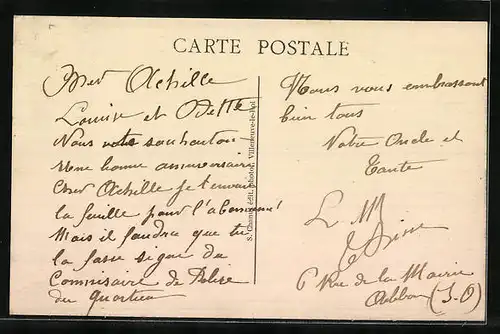 CARTE POSTALE
Cher Achille
Louise et Odette
Nous vous souhaitons
une bonne anniversaire
Cher Achille je t'envoie
la feuille pour l'abonnement
Mais il faudra que tu
la fasse signer du
Commisaire de Police
du Quartier
Villeneuve-le-Roi
Nous vous embrassont
bien tous
Votre Oncle et
Tante
L M
6 Rue de la Mairie
Ablon (S-O)